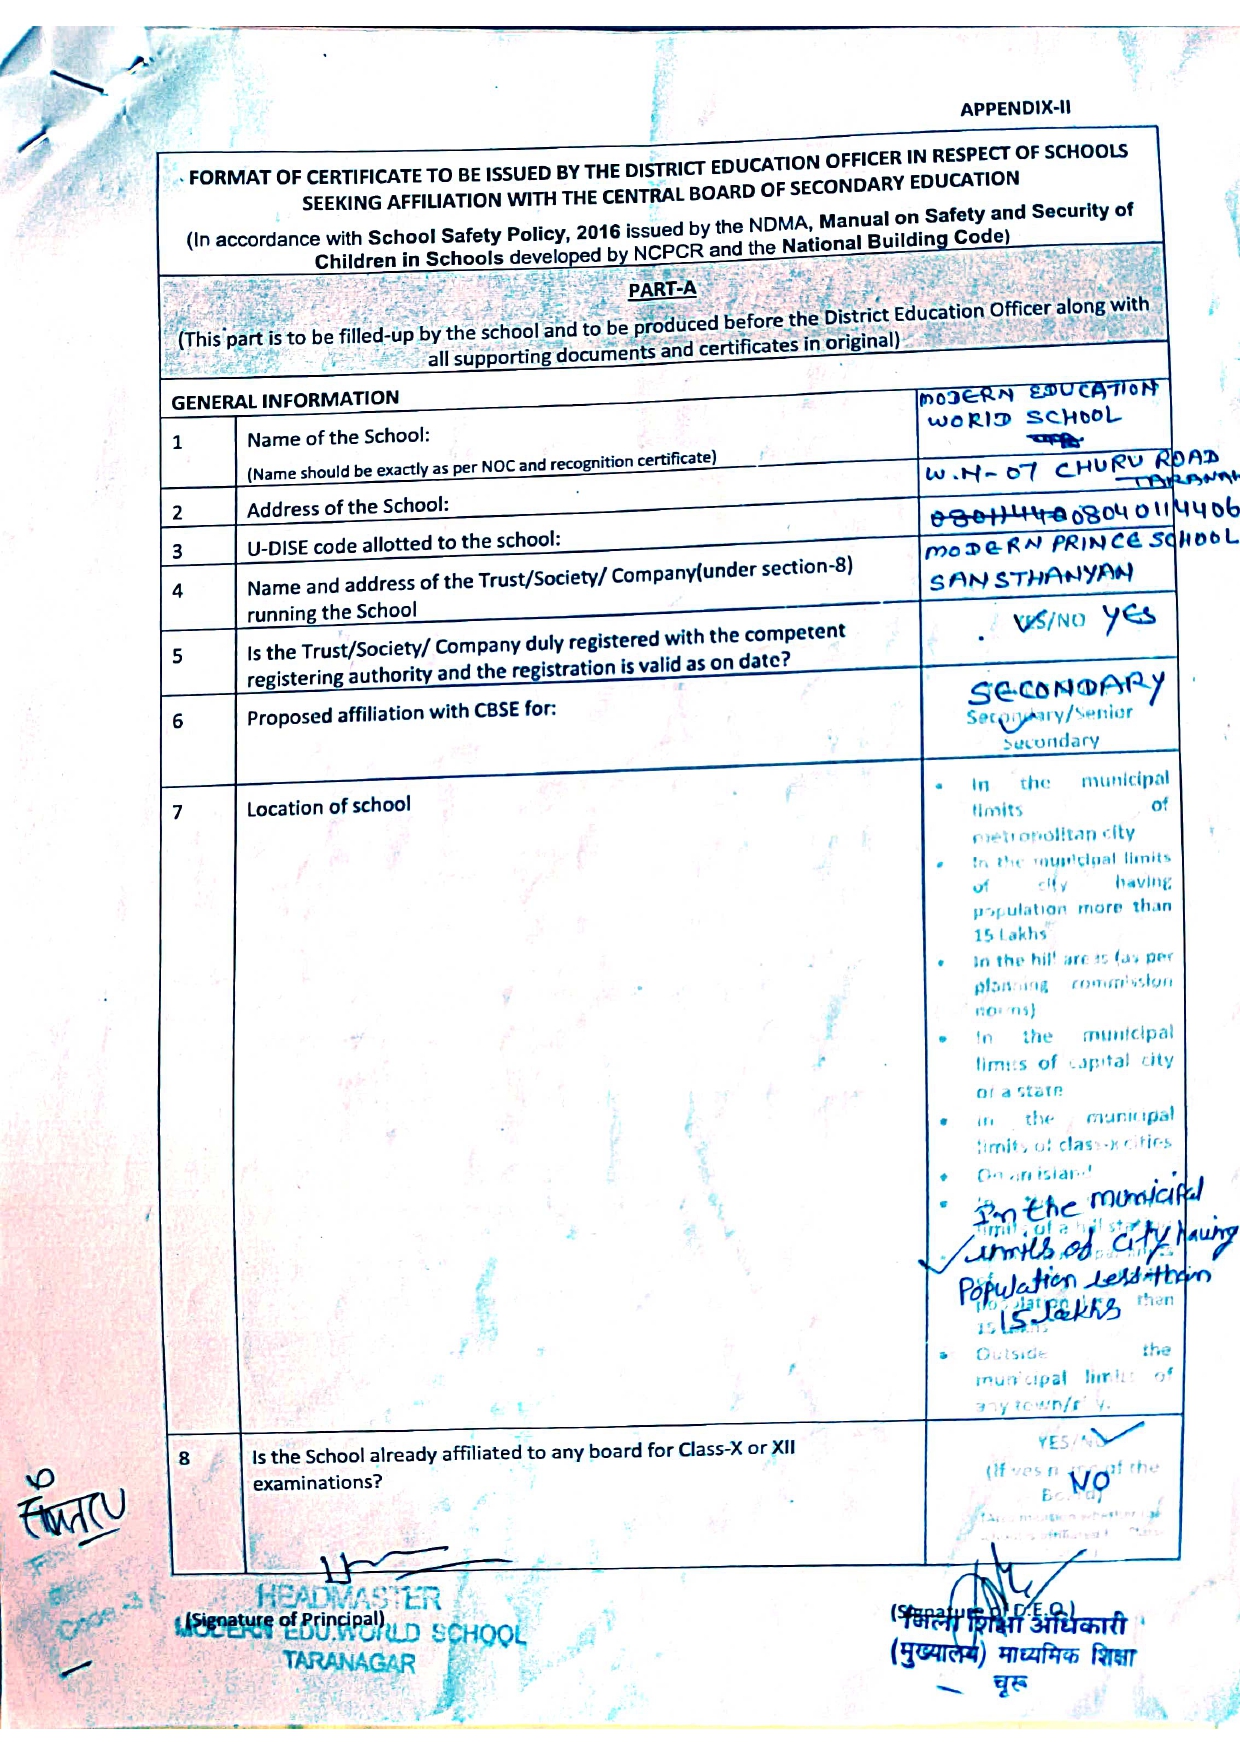 APPENDIX-II
FORMAT OF CERTIFICATE TO BE ISSUED BY THE DISTRICT EDUCATION OFFICER IN RESPECT OF SCHOOLS
SEEKING AFFILIATION WITH THE CENTRAL BOARD OF SECONDARY EDUCATION
(In accordance with School Safety Policy, 2016 issued by the NDMA, Manual on Safety and Security of
Children in Schools developed by NCPCR and the National Building Code)
PART-A
(This part is to be filled-up by the school and to be produced before the District Education Officer along with
all supporting documents and certificates in original)
GENERAL INFORMATION
1 Name of the School:
(Name should be exactly as per NOC and recognition certificate)
MODERN EDUCATION
WORlD SCHOOL
2 Address of the School:
W.N-07 CHURU ROAD
3 U-DISE code allotted to the school:
08040114406
4 Name and address of the Trust/Society/ Company(under section-8)
running the School
MODERN PRINCE SCHOOL
SANSTHANYAN
5 Is the Trust/Society/ Company duly registered with the competent
registering authority and the registration is valid as on date?
YES/NO YES
6 Proposed affiliation with CBSE for:
SECONDARY
Secondary/Senior
Secondary
7 Location of school
• In the municipal
limits of
metropolitan city
• In the municipal limits
of city having
population more than
15 Lakhs
• In the hill areas (as per
planning commission
norms)
• In the municipal
limits of capital city
of a state
• In the municipal
limits of class-x cities
• On an island
In the municipal
limits of city having
Population less than
15 lakhs
than
15 Lakhs
• Outside the
municipal limits of
any town/city.
8 Is the School already affiliated to any board for Class-X or XII
examinations?
YES/NO
(If yes of the
NO
(Signature of Principal)
HEADMASTER
MODERN EDU.WORLD SCHOOL
TARANAGAR
(Signature of D.E.O.)
जिला शिक्षा अधिकारी
(मुख्यालय) माध्यमिक शिक्षा
चूरू